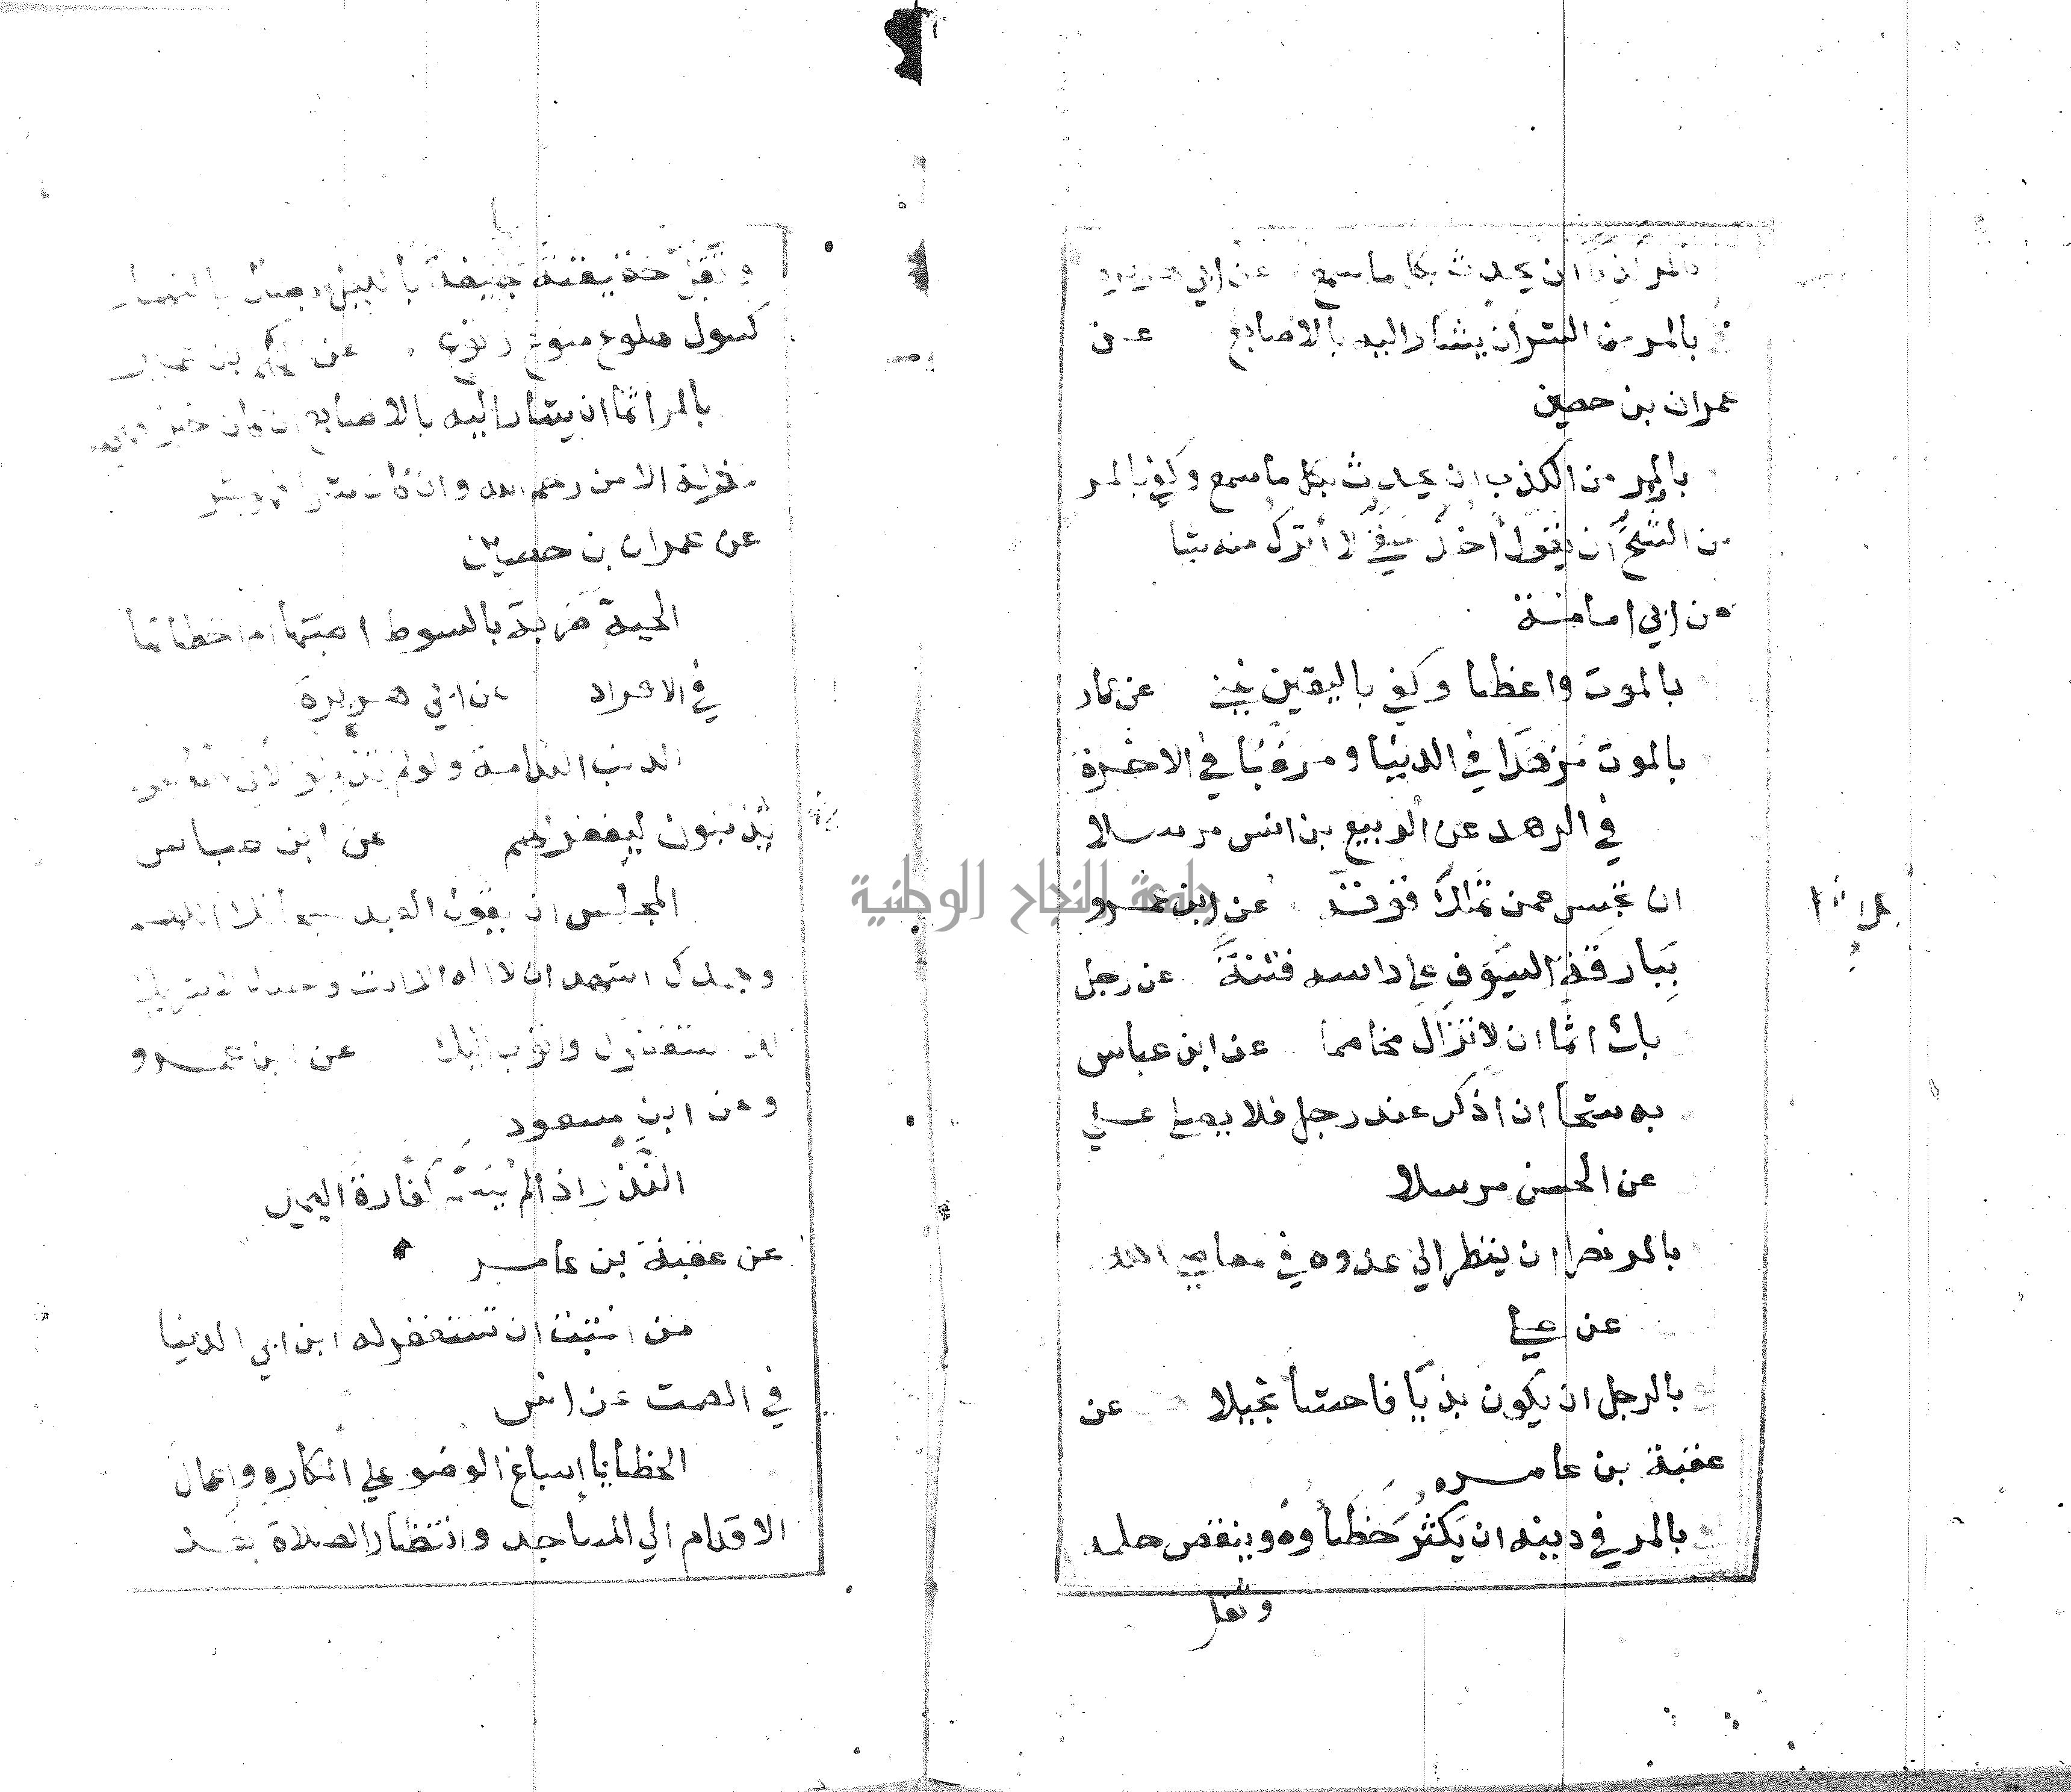 بالمر اثما ان يحدث بكل ما سمع عن ابي هريرة
بالمر من الشر ان يشار اليه بالاصابع عن
عمران بن حصين
بالمر من الكذب ان يحدث بكل ما سمع وكفي بالمر
من الشح ان يقول اخذ حقي لا اترك منه شيا
عن ابي امامة
بالموت واعظا وكفي باليقين غني عن عمار
بالموت مزهدا في الدنيا ومرغبا في الاخرة
في الزهد عن الربيع بن انس مرسلا
ان تحبس عمن تملك قوته عن ابن عمرو
ببارقة السيوف علي راسه فتنة عن رجل
بك اثما ان لا تزال مخاصما عن ابن عباس
به شحا ان اذكر عند رجل فلا يصلي علي
عن الحسن مرسلا
بالمر نصرا ان ينظر الي عدوه في معاصي الله
عن علي
بالرجل ان يكون بذيا فاحشا بخيلا عن
عقبة بن عامر
بالمر في دينه ان يكثر خطاوه وينقص حلمه
وتقل
وتقل حقيقته جيفة بالليل بطال بالنهار
كسول هلوع منوع رتوع عن الحكم بن عمير
بالمر اثما ان يشار اليه بالاصابع ان كان خيرا
مزلة الا من رحم الله وان كان شرا فهو شر
عن عمران بن حصين
الحية ضربة بالسوط اصبتها ام اخطاتها
في الافراد عن ابي هريرة
الذنب الندامة ولو لم تذنبوا لاتي الله بقوم
يذنبون ليغفر لهم عن ابن عباس
المجلس ان يقول العبد سبحانك اللهم
وبحمدك اشهد ان لا اله الا انت وحدك لا شريك
لك استغفرك واتوب اليك عن ابن عمرو
وعن ابن مسعود
النذر اذا لم يسم كفارة اليمين
عن عقبة بن عامر
من اغتبت ان تستغفر له ابن ابي الدنيا
في الصمت عن انس
الخطايا اسباغ الوضو علي المكاره واعمال
الاقدام الي المساجد وانتظار الصلاة بعد
جامعة النجاح الوطنية